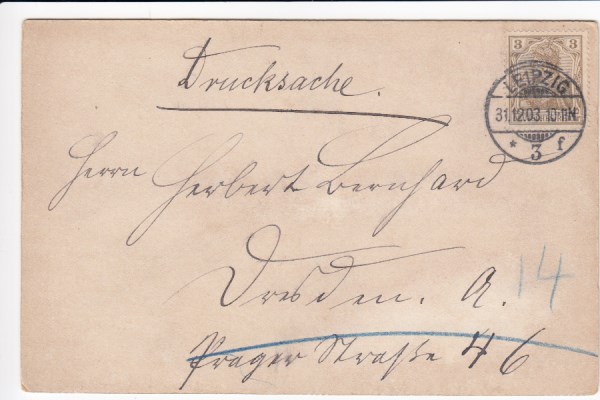 3 3
LEIPZIG
31.12.03. 10-11N
* 3 f
Drucksache.
Herrn Herbert Bernhard
Dresden. A.
14
Prager Straße 46